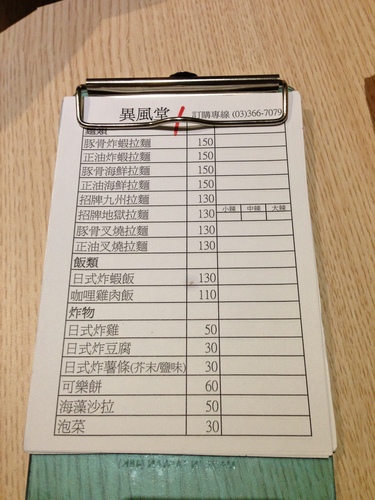 異風堂 訂購專線 (03)366-7079
麵類
豚骨炸蝦拉麵 150
正油炸蝦拉麵 150
豚骨海鮮拉麵 150
正油海鮮拉麵 150
招牌九州拉麵 130
招牌地獄拉麵 130 小辣 中辣 大辣
豚骨叉燒拉麵 130
正油叉燒拉麵 130
飯類
日式炸蝦飯 130
咖哩雞肉飯 110
炸物
日式炸雞 50
日式炸豆腐 30
日式炸薯條(芥末/鹽味) 30
可樂餅 60
海藻沙拉 50
泡菜 30